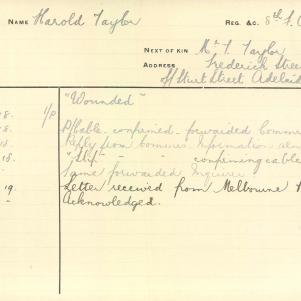 NAME Harold Taylor REG. &C. 8th F. 
NEXT OF KIN Mr T. Taylor
ADDRESS Frederick Stree
off Sturt Street Adelaid
8. 1/P "Wounded"
8. confirmed forwarded Comm
18. Reply from Commrs. Information
18. " " confirming cable
Same forwarded Inquirer
19. Letter received from Melbourne
Acknowledged.